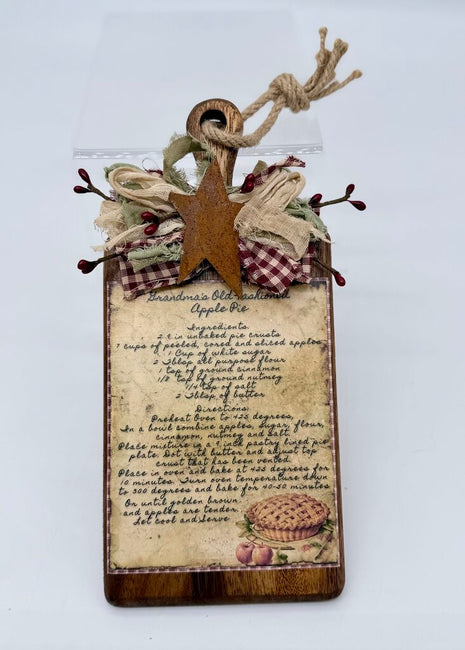 Grandma's Old-Fashioned
Apple Pie
Ingredients:
2 9 in unbaked pie crusts
7 cups of peeled, cored and sliced apples
1 Cup of white sugar
2 Tblsp all purpose flour
1 tsp of ground cinnamon
1/8 tsp of ground nutmeg
1/4 tsp of salt
2 Tblsp of butter
Directions:
Preheat Oven to 425 degrees,
In a bowl combine apples, Sugar, flour,
cinnamon, nutmeg and salt.
Place mixture in a 9 inch pastry lined pie
plate. Dot with butter and adjust top
crust that has been vented.
Place in oven and bake at 425 degrees for
10 minutes. Turn oven temperature down
to 300 degrees and bake for 40-50 minutes
Or until golden brown
and apples are tender.
Let cool and Serve